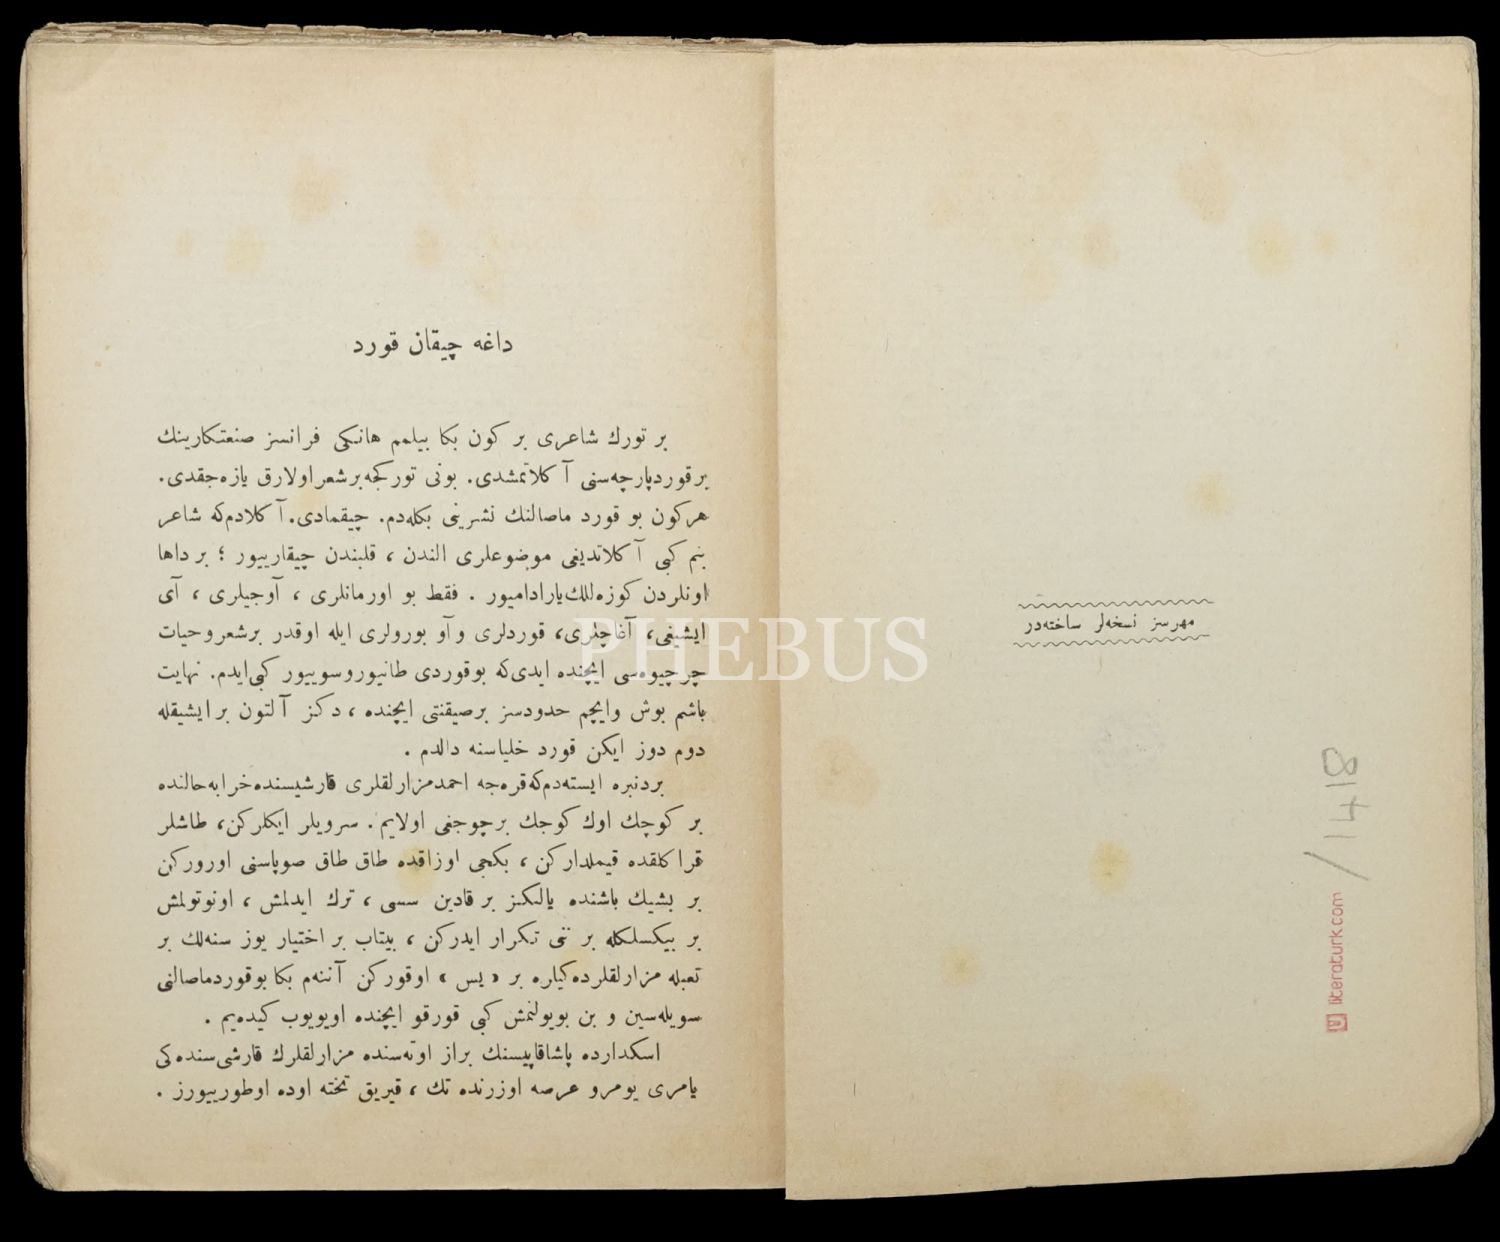 مهرسز نسخه‌لر ساخته‌در
/ 1418
literaturk.com
PHEBUS
داغه چیقان قورد
بر تورك شاعری بر كون بكا بیلمم هانكی فرانسز صنعتكارینك
بر قورد پارچه‌سنی آكلاتمشدی. بونی توركجه بر شعر اولارق یازه‌جقدی.
هركون بو قورد ماصالنك نشرینی بكله‌دم. چیقمادی. آكلادم‌كه شاعر
بنم كبی آكلاتدیغی موضوعلری الندن ، قلبندن چیقارییور ؛ بر داها
اونلردن كوزه‌للك یارادامیور . فقط بو اورمانلری ، آوجیلری ، آی
ایشیغی، آغاچلری، قوردلری و آو بورولری ایله اوقدر بر شعر و حیات
چرچیوه‌سی ایچنده ایدی‌كه بو قوردی طانیور و سوییور كبی ایدم. نهایت
باشم بوش و ایچم حدودسز بر صیقنتی ایچنده ، دكز آلتون بر ایشیقله
دوم دوز ایكن قورد خلیاسنه دالدم .
بردنبره ایسته‌دم‌كه قره‌جه احمد مزارلقلری قارشیسنده خرابه حالنده
بر كوچك اوك كوجك بر چوجغی اولایم . سرویلر ایكلركن، طاشلر
قراكلقده قیملدارکن ، بكجی اوزاقده طاق طاق صوپاسنی اوروركن
بر بشیك باشنده یالكز بر قادین سسی ، ترك ایدلمش ، اونوتولمش
بر بیكسلكله بر ننی تكرار ایدركن ، بیتاب بر اختیار یوز سنه‌لك بر
تعبله مزارلقلرده‌كیلره بر « یس » اوقوركن آننه‌م بكا بو قورد ماصالنی
سویله‌سین و بن بویولنمش كبی قورقو ایچنده اویویوب كیده‌یم .
اسكدارده پاشاقاپیسنك براز اوته‌سنده مزارلقلرك قارشی‌سنده‌كی
یامری یومرو عرصه اوزرنده تك ، قیریق تخته اوده اوطورییورز .